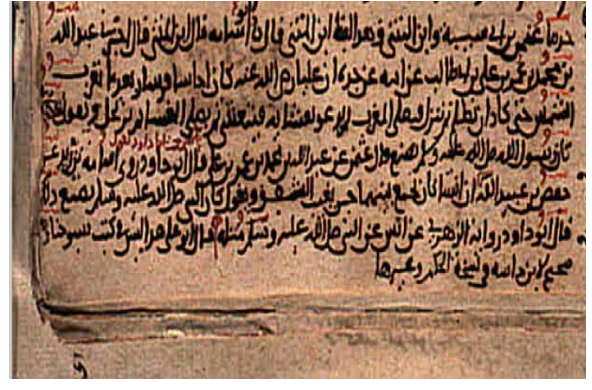 حدثنا عثمن بن أبي شيبة وابن المثنى وهذا لفظ ابن المثنى قالا نا أبو أسامة قال ابن المثنى قال أخبرني عبد الله
بن محمد بن عمر بن علي بن أبي طالب عن أبيه عن جده أن عليا رضي الله عنه كان إذا سافر سار بعد ما تغرب
الشمس حتى تكاد أن تظلم ثم ينزل فيصلي المغرب ثم يدعو بعشائه فيتعشى ثم يصلي العشاء ثم يرتحل ويقول هكذا
كان رسول الله صلى الله عليه وسلم يصنع قال عثمن عن عبد الله بن محمد بن عمر بن علي قال أبو داود وروى أسامة بن زيد عن
حفص بن عبيد الله أن أنسا كان يجمع بينهما حين يغيب الشفق ويقول كان النبي صلى الله عليه وسلم يصنع ذلك
قال أبو داود ورواية الزهري عن أنس عن النبي صلى الله عليه وسلم مثله قال أبو علي هذا
صح لابن داسة